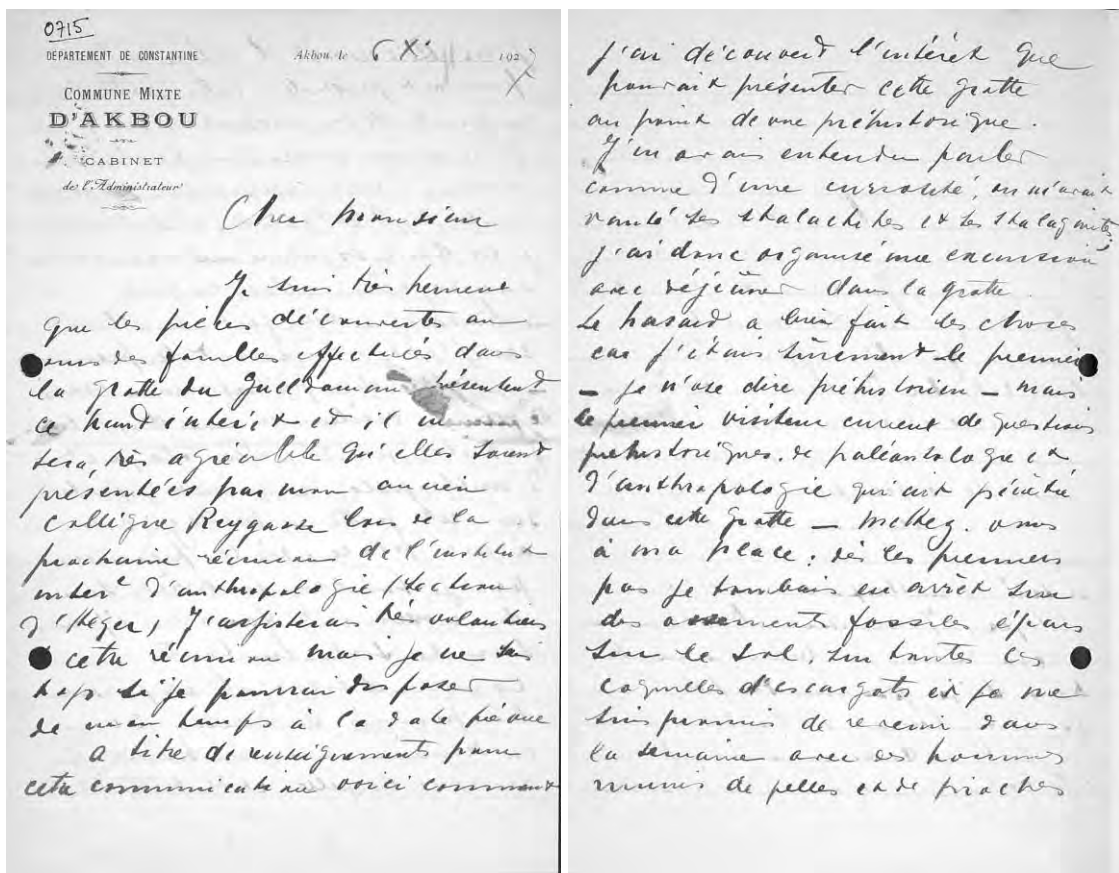 0715
DÉPARTEMENT DE CONSTANTINE
Akbou, le 6 XI 192
COMMUNE MIXTE
D'AKBOU
CABINET
de l'Administrateur
Cher Monsieur
Je suis très heureux
que les pièces découvertes au
cours des fouilles effectuées dans
la grotte du Gueldaman présentent
ce haut intérêt et il me
sera, très agréable qu'elles soient
présentées par mon ancien
collègue Reygasse lors de la
prochaine réunion de l'institut
inter^l d'anthropologie (section
d'Alger) J'assisterais très volontiers
à cette réunion mais je ne sais
trop si je pourrai disposer
de mon temps à la date prévue
A titre de renseignements pour
cette communication voici comment
j'ai découvert l'intérêt que
pouvait présenter cette grotte
au point de vue préhistorique.
J'en avais entendu parler
comme d'une curiosité, on m'avait
vanté ses stalactites et ses stalagmites,
j'ai donc organisé une excursion
avec déjeûner dans la grotte
Le hasard a bien fait les choses
car j'étais sûrement le premier
– je n'ose dire préhistorien – mais
le premier visiteur curieux de questions
préhistoriques, de paléontologie et
d'anthropologie qui ait pénétré
dans cette grotte – Mettez-vous
à ma place : dès les premiers
pas je tombais en arrêt sur
des ossements fossiles épars
sur le sol, sur toutes ces
coquilles d'escargots et je me
suis promis de revenir dans
la semaine avec des hommes
munis de pelles et de pioches